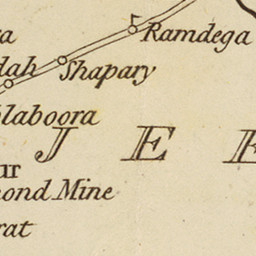 Ramdega
Shapary
laboora
J E E
ond Mine
rat